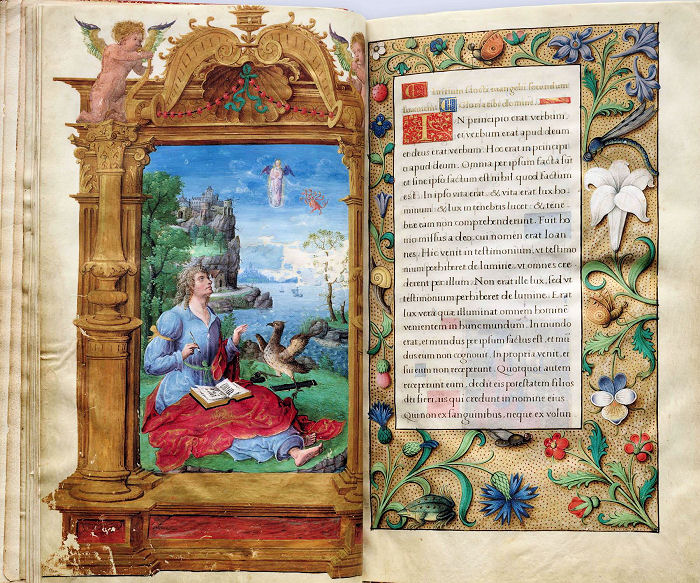 Initium sancti evangelii secundum
Joannem. Gloria tibi domine.
IN principio erat verbum,
et verbum erat apud deum
et deus erat verbum. Hoc erat in principi
o apud deum. Omnia per ipsum facta sūt
et sine ipso factum est nihil quod factum
est. In ipso vita erat, & vita erat lux ho
minum: & lux in tenebris lucet: & tene
brę eam non comprehenderunt. Fuit ho
mo missus a deo, cui nomen erat Ioan
nes. Hic venit in testimonium, vt testimo
nium perhiberet de lumine, vt omnes cre
derent per illum. Non erat ille lux, sed vt
testimonium perhiberet de lumine. Erat
lux vera quę illuminat omnem hominē
venientem in hunc mundum. In mundo
erat, et mundus per ipsum factus est, et mū
dus eum non cognouit. In propria venit, et
sui eum non receperunt. Quotquot autem
receperunt eum, dedit eis potestatem filios
dei fieri, iis qui credunt in nomine eius
Qui non ex sanguinibus, neque ex volun